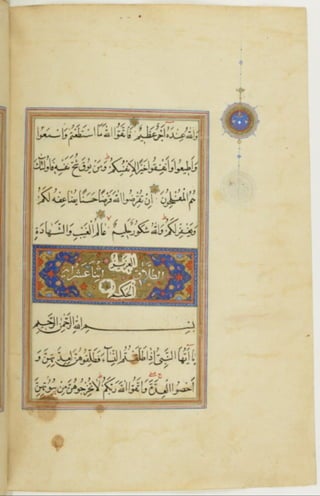 والله عنده أجر عظيم فاتقوا الله ما استطعتم واسمعوا
وأطيعوا وأنفقوا خيرا لأنفسكم ومن يوق شح نفسه فأولئك
هم المفلحون إن تقرضوا الله قرضا حسنا يضاعفه لكم
ويغفر لكم والله شكور حليم عالم الغيب والشهادة
العزيز
الطلاق اثنا عشر آية
الحكيم
بسم الله الرحمن الرحيم
يا أيها النبي إذا طلقتم النساء فطلقوهن لعدتهن و
أحصوا العدة واتقوا الله ربكم لا تخرجوهن من بيوتهن